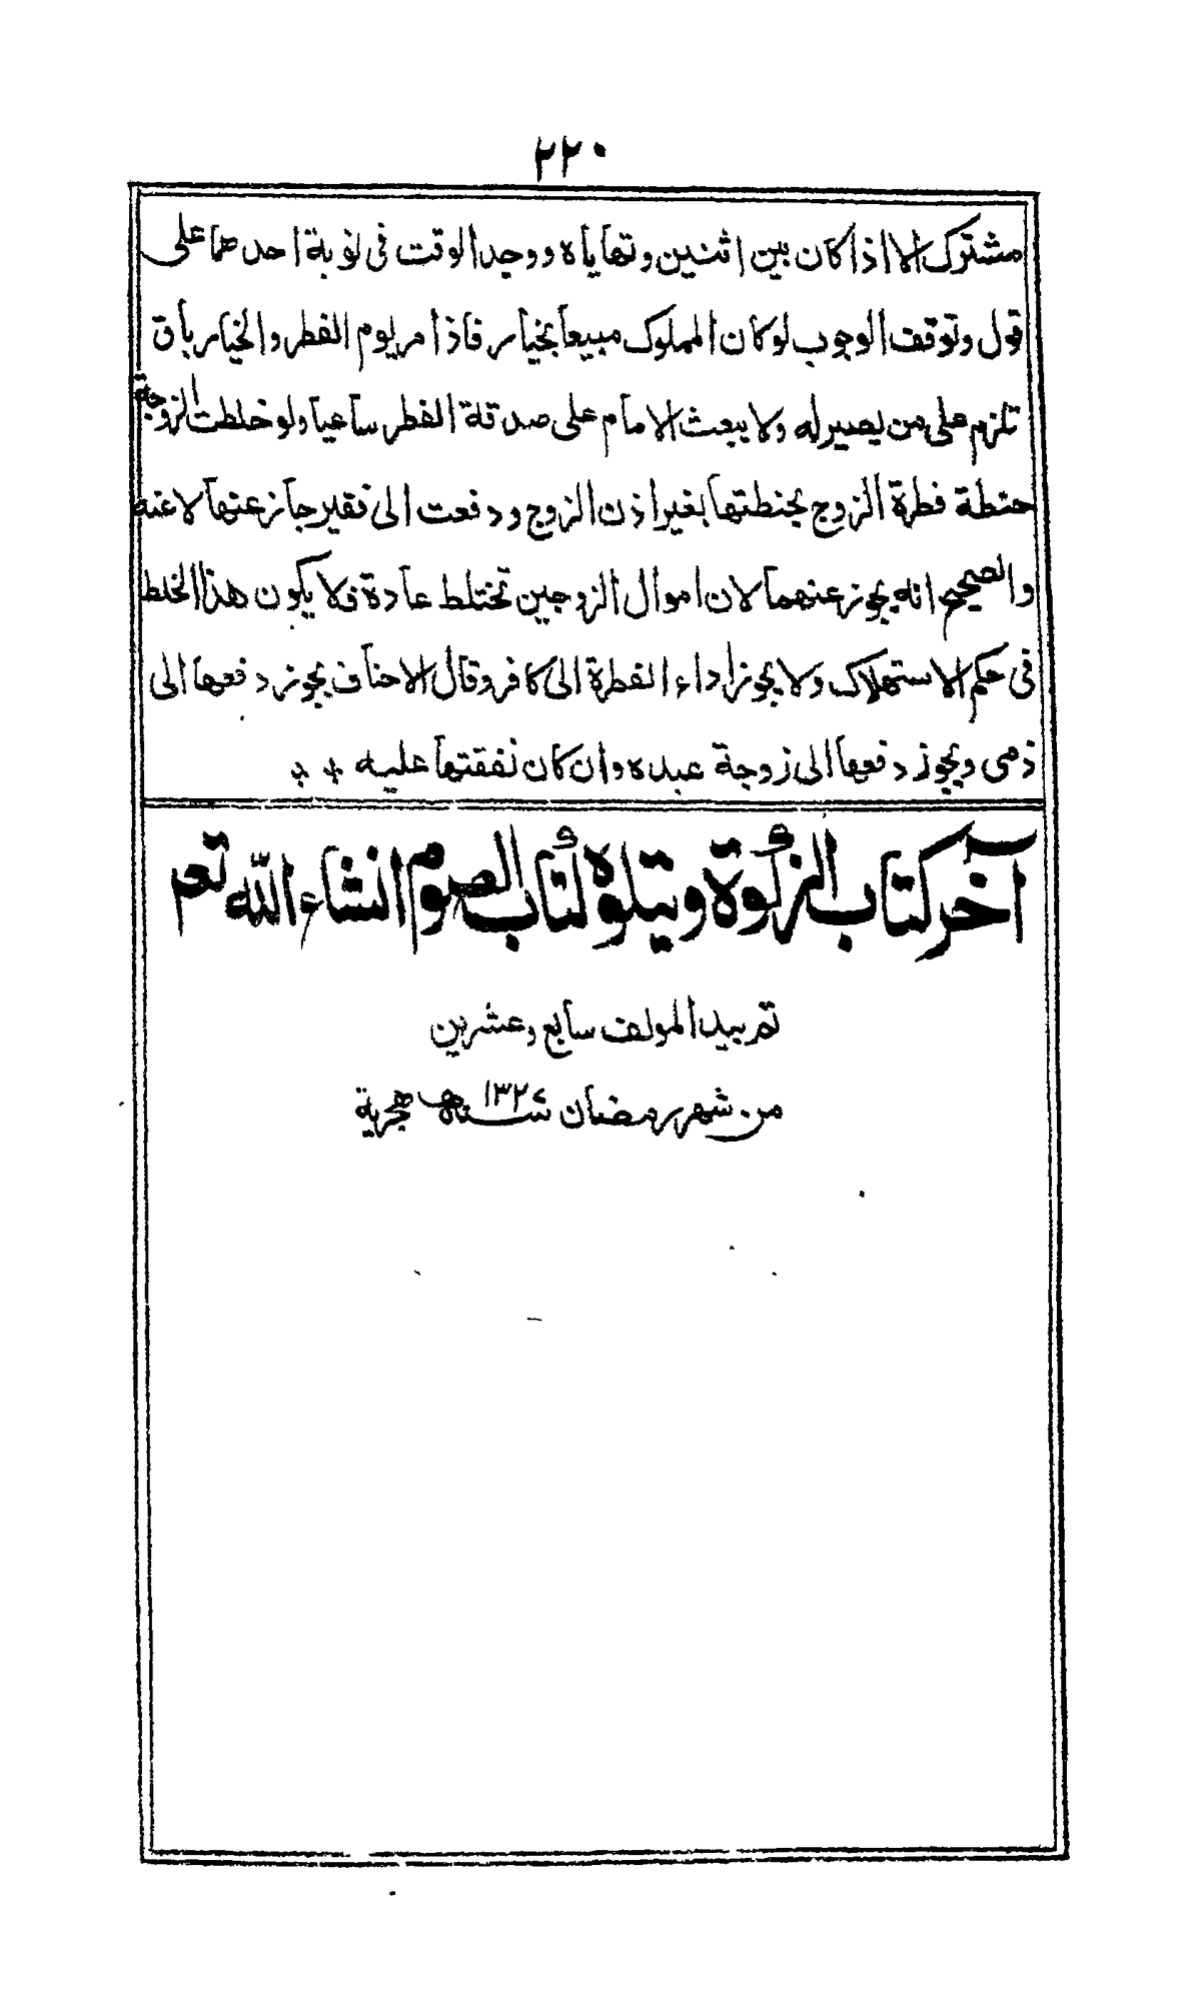 ٢٢٠
مشترك الا اذا كان بين اثنين وتهاياه ووجد الوقت فى نوبة احدهما على
قول وتوقف الوجوب لو كان المملوك مبيعا بخيار فاذا مر يوم الفطر والخيار باق
تلزم على من يصير له ولا يبعث الامام على صدقة الفطر ساعيا ولو خلطت الزوجة
حنطة فطرة الزوج بحنطتها بغير اذن الزوج ودفعت الى فقير جاز عنها لا عنه
والصحيح انه يجوز عنهما لان اموال الزوجين تختلط عادة فلا يكون هذا الخلط
فى حكم الاستهلاك ولا يجوز اداء الفطرة الى كافر وقال الاحناف يجوز دفعها الى
ذمى ويجوز دفعها الى زوجة عبده وان كان نفقتها عليه
آخر كتاب الزكوة ويتلوه كتاب الصوم انشاء الله تعم
تم بيد المولف سابع وعشرين
من شهر رمضان سنة هجرية